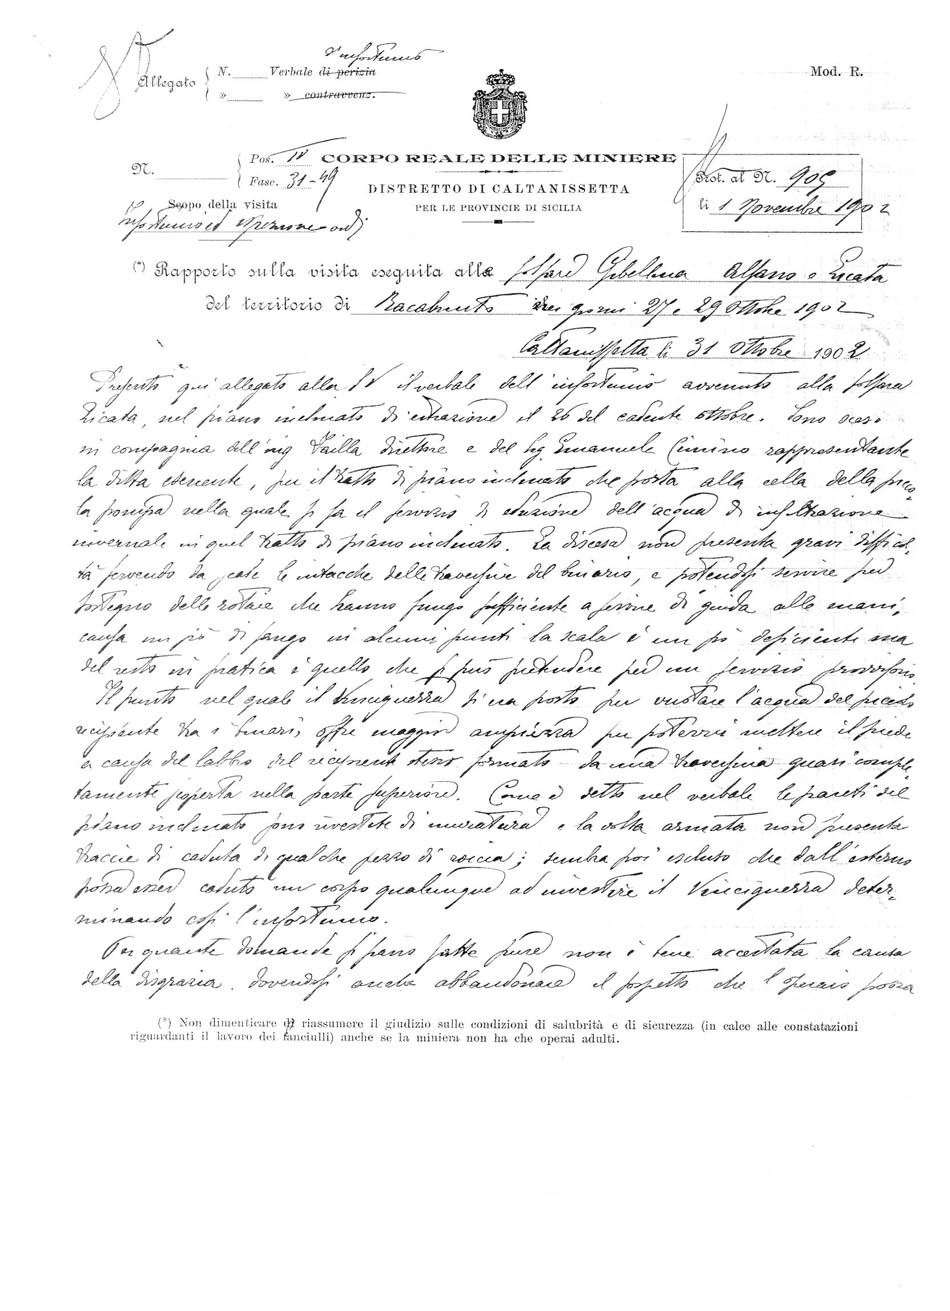 d'infortunio
Allegato N. Verbale di perizia
» » contravvenz.
Mod. R.
N. Pos. IV
Fasc. 31-49
CORPO REALE DELLE MINIERE
DISTRETTO DI CALTANISSETTA
PER LE PROVINCIE DI SICILIA
Prot. al N. 905
li 1 Novembre 1902
Scopo della visita
Infortunio ed
(*) Rapporto sulla visita eseguita alle solfare Gibellina Alfano e Licata
del territorio di Racalmuto nei giorni 27 e 29 Ottobre 1902
Caltanissetta li 31 Ottobre 1902
Presento qui allegato alla IV il verbale dell'infortunio avvenuto alla solfara
Licata, nel piano inclinato di estrazione il 26 del cadente ottobre. Sono sceso
in compagnia dell'ing Vailla direttore e del Sig. Emanuele Cimino rappresentante
la ditta esercente, per il tratto di piano inclinato che porta alla cella della picco
la pompa nella quale si fa il servizio di eduzione dell'acqua di infiltrazione
invernale in quel tratto di piano inclinato. La discesa non presenta gravi difficol
tà servendo da scale le intacche delle traversine del binario, e potendosi servire per
sostegno delle rotaie che hanno fungo sufficiente a servire di guida alle mani;
causa un pò di fango in alcuni punti la scala è un pò deficiente ma
del resto in pratica è quello che si può pretendere per un servizio provvisorio.
Il punto nel quale il Vinciguerra si era posto per vuotare l'acqua del piccolo
recipiente tra i binari, offre maggior ampiezza per potervi mettere il piede
a causa del labbro del recipiente stesso formato da una traversina quasi comple
tamente scoperta nella parte superiore. Come è detto nel verbale le pareti del
piano inclinato sono rivestite di muratura e la volta armata non presenta
traccie di caduta di qualche pezzo di roccia; sembra poi escluso che dall'esterno
possa esser caduto un corpo qualunque ad investire il Vinciguerra deter-
minando così l'infortunio.
Per quante domande si siano fatte pure non è bene accertata la causa
della disgrazia. dovendosi anche abbandonare il sospetto che l'operaio possa
(*) Non dimenticare di riassumere il giudizio sulle condizioni di salubrità e di sicurezza (in calce alle constatazioni
riguardanti il lavoro dei fanciulli) anche se la miniera non ha che operai adulti.